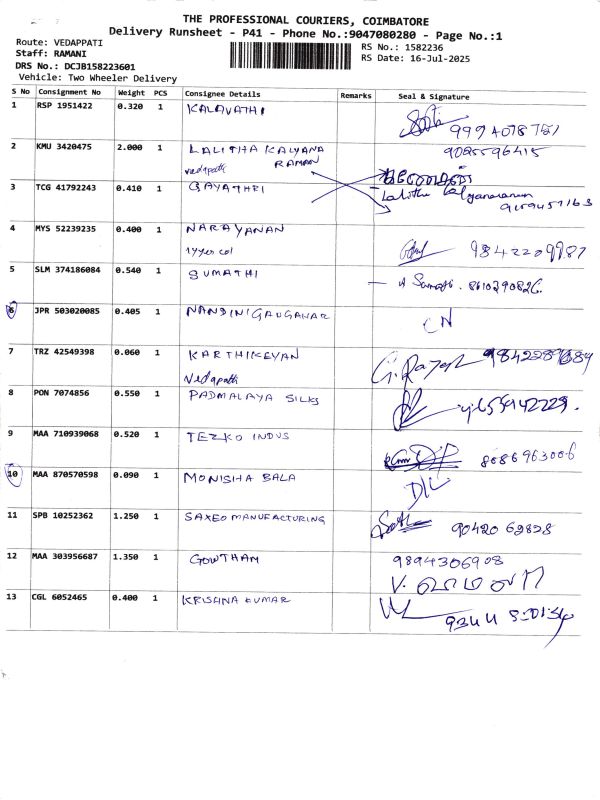 THE PROFESSIONAL COURIERS, COIMBATORE
Delivery Runsheet - P41 - Phone No.:9047080280 - Page No.:1
Route: VEDAPPATI
Staff: RAMANI
DRS No.: DCJB158223601
Vehicle: Two Wheeler Delivery
RS No.: 1582236
RS Date: 16-Jul-2025
S No Consignment No Weight PCS Consignee Details Remarks Seal & Signature
1 RSP 1951422 0.320 1 KALAVATHI
2 KMU 3420475 2.000 1 LALITHA KALYANA RAMAN 9025596415
vedapatti
3 TCG 41792243 0.410 1 GAYATHRI
4 MYS 52239235 0.400 1 NARAYANAN 9842209987
5 SLM 374186084 0.540 1 SUMATHI
6 JPR 503020085 0.405 1 NANDINI GAUGANAR CN
7 TRZ 42549398 0.060 1 KARTHIKEYAN
Vedapatti
8 PON 7074856 0.550 1 PADMALAYA SILKS
9 MAA 710939068 0.520 1 TEZKO INDUS 8086963006
10 MAA 870570598 0.090 1 MONISHA BALA D/L
11 SPB 10252362 1.250 1 SAXEO MANUFACTURING 90420 62828
12 MAA 303956687 1.350 1 GOWTHAM 9894306908
13 CGL 6052465 0.400 1 KRISHNA KUMAR